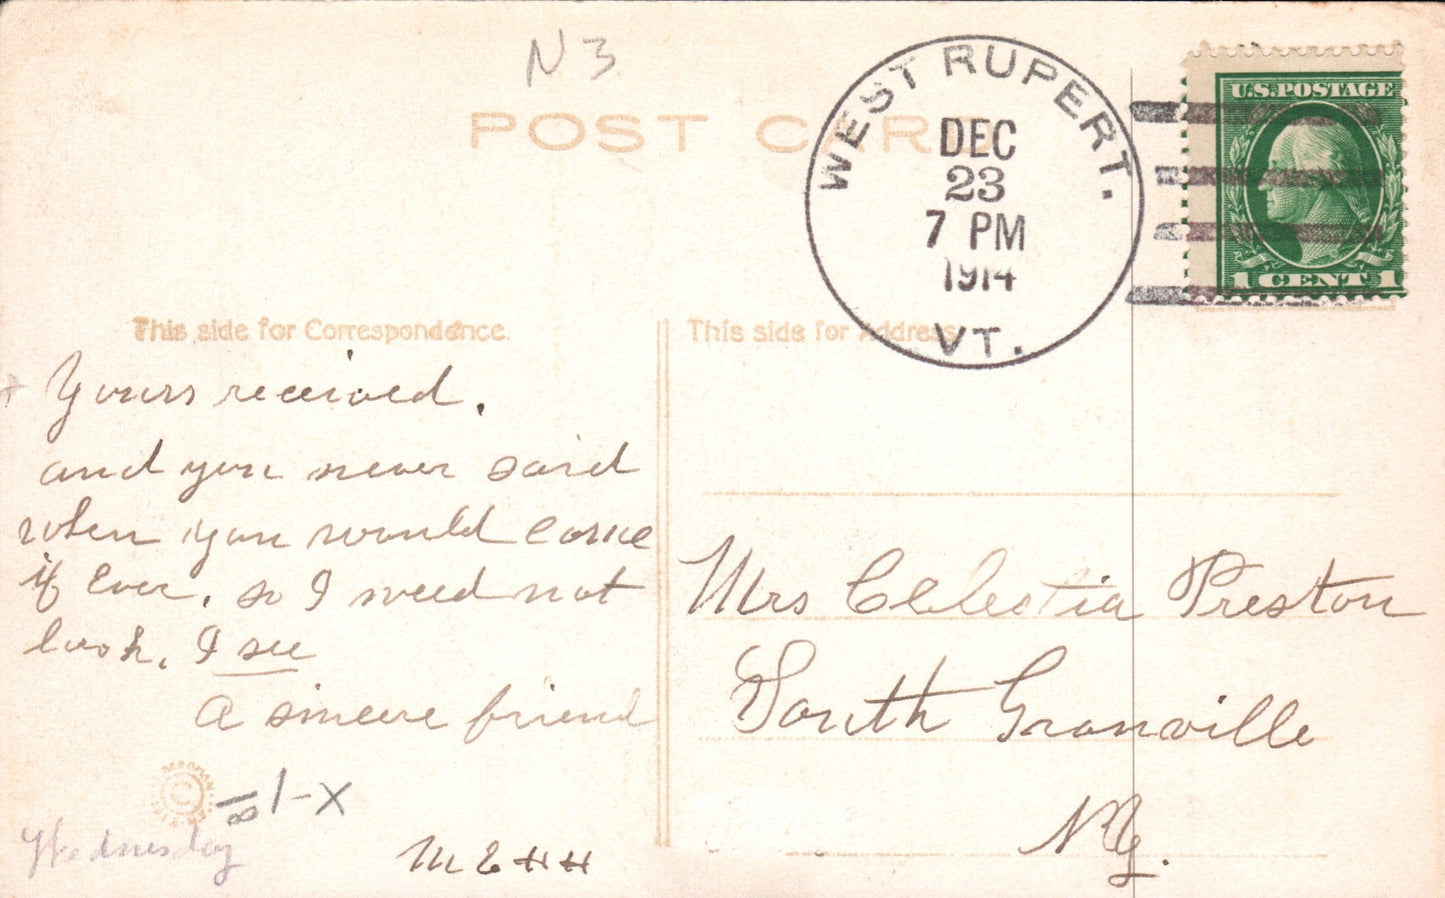 N 3
POST CARD
WEST RUPERT.
DEC
23
7 PM
1914
VT.
U.S. POSTAGE
1 CENT 1
This side for Correspondence.
This side for Address.
Yours received.
and you never said
when you would come
if Ever. so I need not
look. I see
A sincere friend
1-X
Wednesday
M E H H
Mrs Celestia Preston
South Granville
NY.